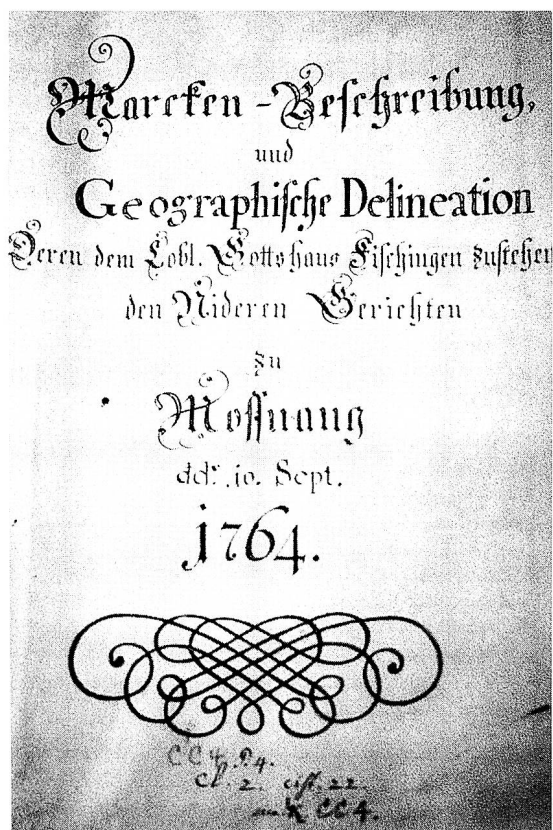 Marcken-Beschreibung,
und
Geographische Delineation
Deren dem Lobl. Gottshaus Fischingen zustehen
den Nideren Gerichten
zu
Mossnang
ddº. 10. Sept.
1764.
CC4.
Cl. 2. cist. 22.
CC 4.